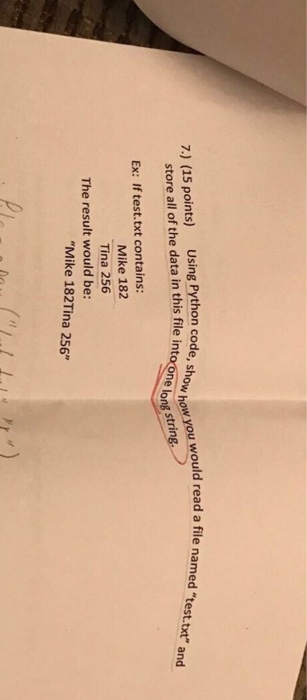 7.) (15 points) Using Python code, show how you would read a file named "test.txt" and
store all of the data in this file into one long string.
Ex: If test.txt contains:
Mike 182
Tina 256
The result would be:
"Mike 182Tina 256"